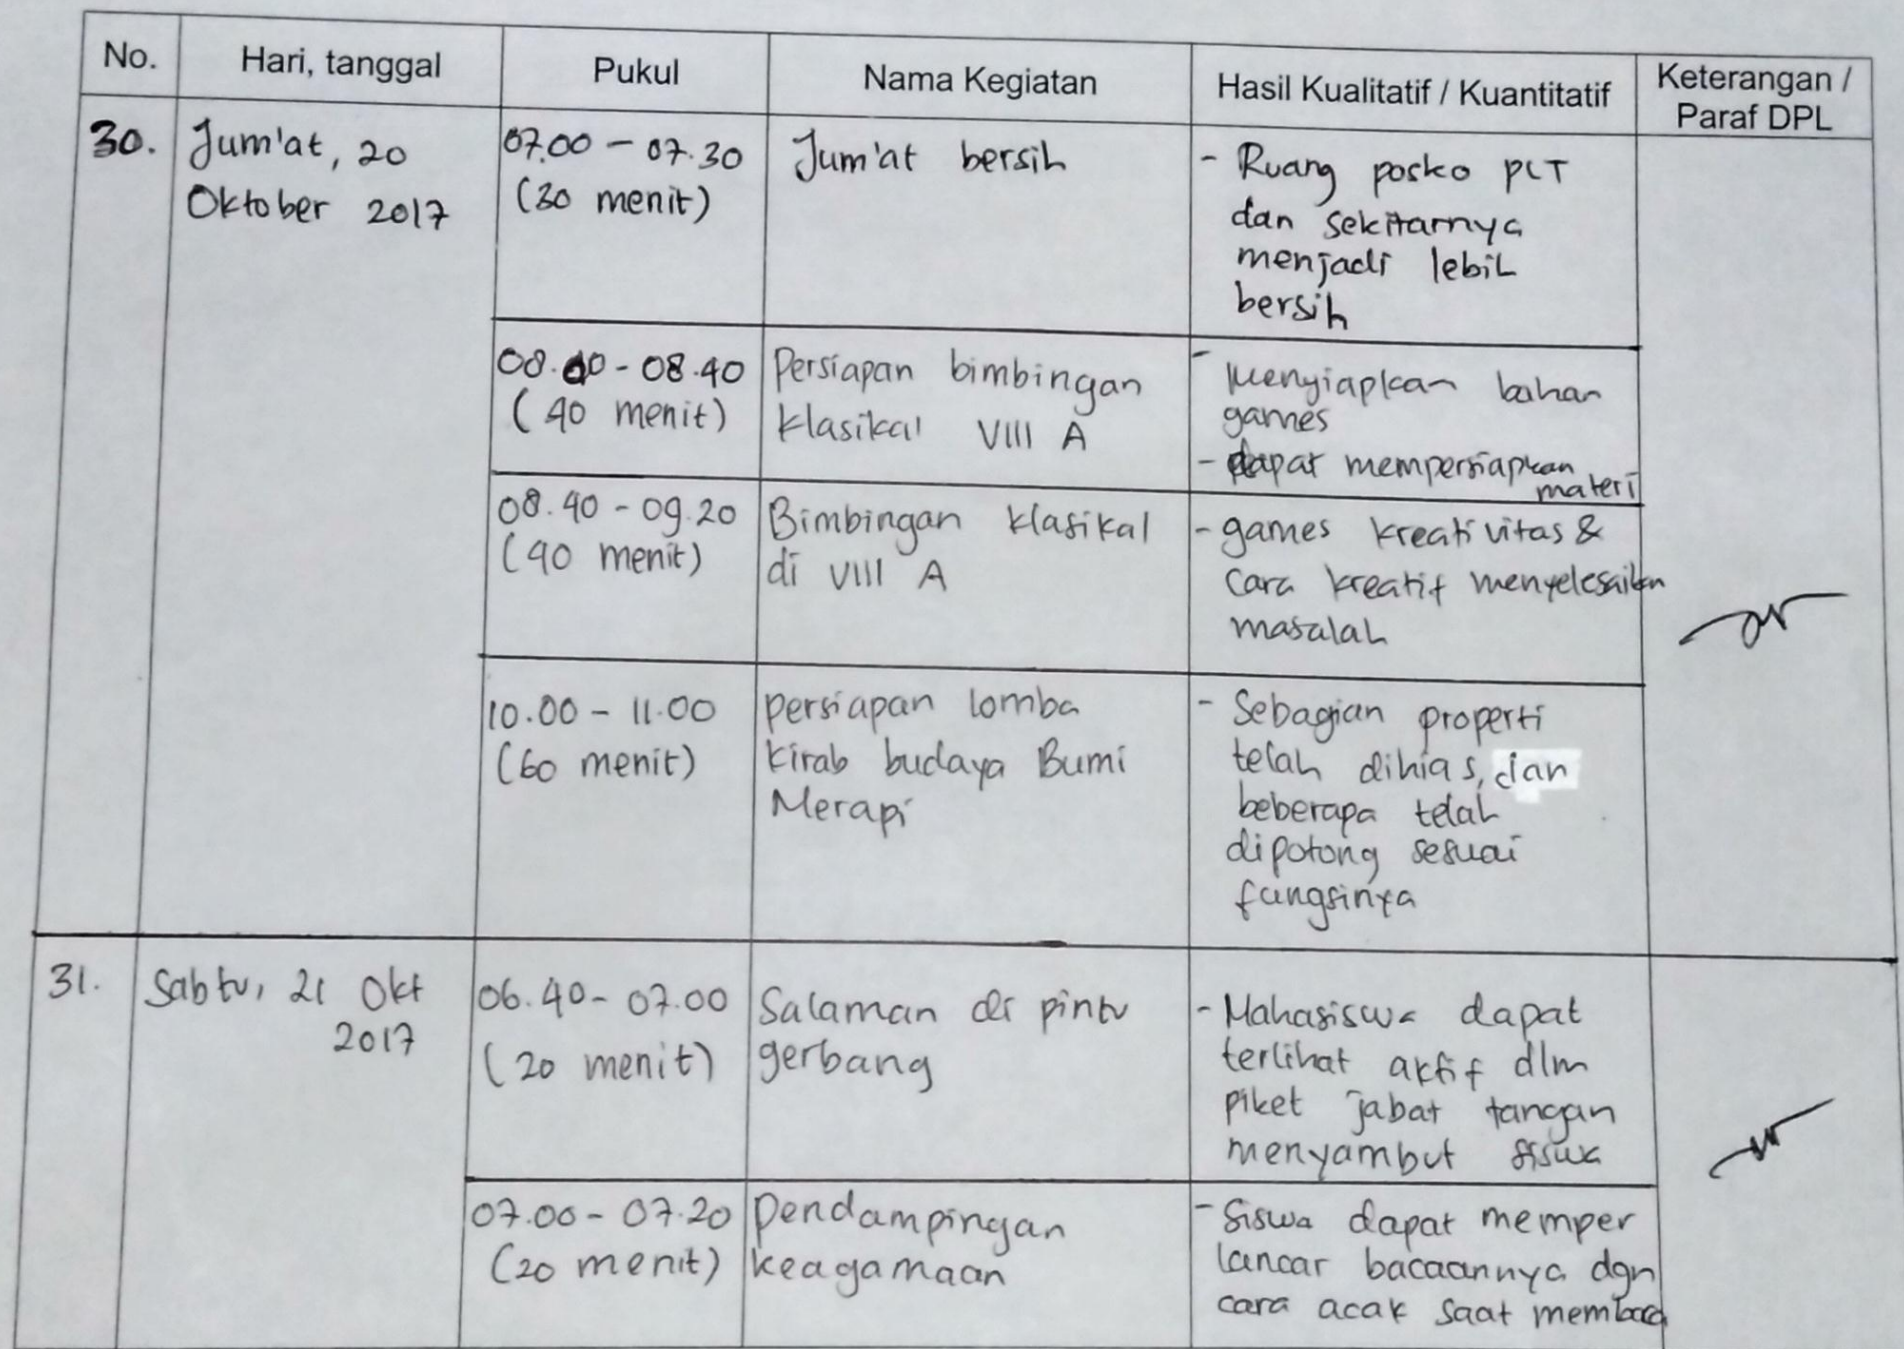 No. Hari, tanggal Pukul Nama Kegiatan Hasil Kualitatif / Kuantitatif Keterangan / Paraf DPL
30. Jum'at, 20 Oktober 2017
07.00 - 07.30 (30 menit)
Jum'at bersih
- Ruang posko PLT
dan sekitarnya
menjadi lebih
bersih
08.00 - 08.40
(40 menit)
Persiapan bimbingan
klasikal VIII A
- Menyiapkan bahan
games
- dapat mempersiapkan
materi
08.40 - 09.20
(40 menit)
Bimbingan klasikal
di VIII A
- games kreativitas &
cara kreatif menyelesaikan
masalah
10.00 - 11.00
(60 menit)
persiapan lomba
kirab budaya Bumi
Merapi
- Sebagian properti
telah dihias, dan
beberapa telah
dipotong sesuai
fungsinya
31. Sabtu, 21 Okt
2017
06.40 - 07.00
(20 menit)
Salaman di pintu
gerbang
- Mahasiswa dapat
terlihat aktif dlm
piket jabat tangan
menyambut siswa
07.00 - 07.20
(20 menit)
Pendampingan
keagamaan
- Siswa dapat memper
lancar bacaannya dgn
cara acak saat membaca